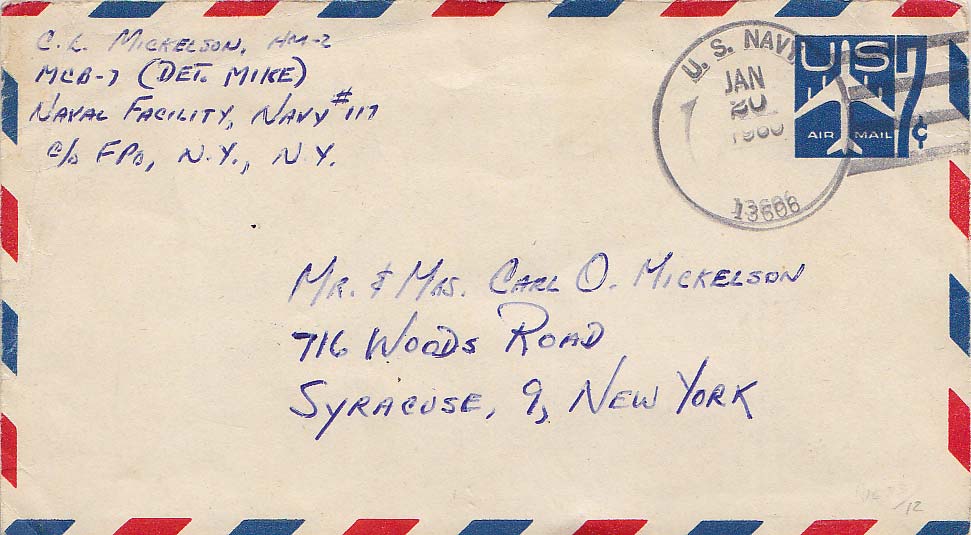 C. L. MICKELSON, HM-2
MCB-7 (DET. MIKE)
NAVAL FACILITY, NAVY #117
c/o FPO, N.Y., N.Y.
U. S. NAVY
JAN
20
1960
13606
US 7¢
AIR MAIL
MR. & MRS. CARL O. MICKELSON
716 WOODS ROAD
SYRACUSE, 9, NEW YORK
/12